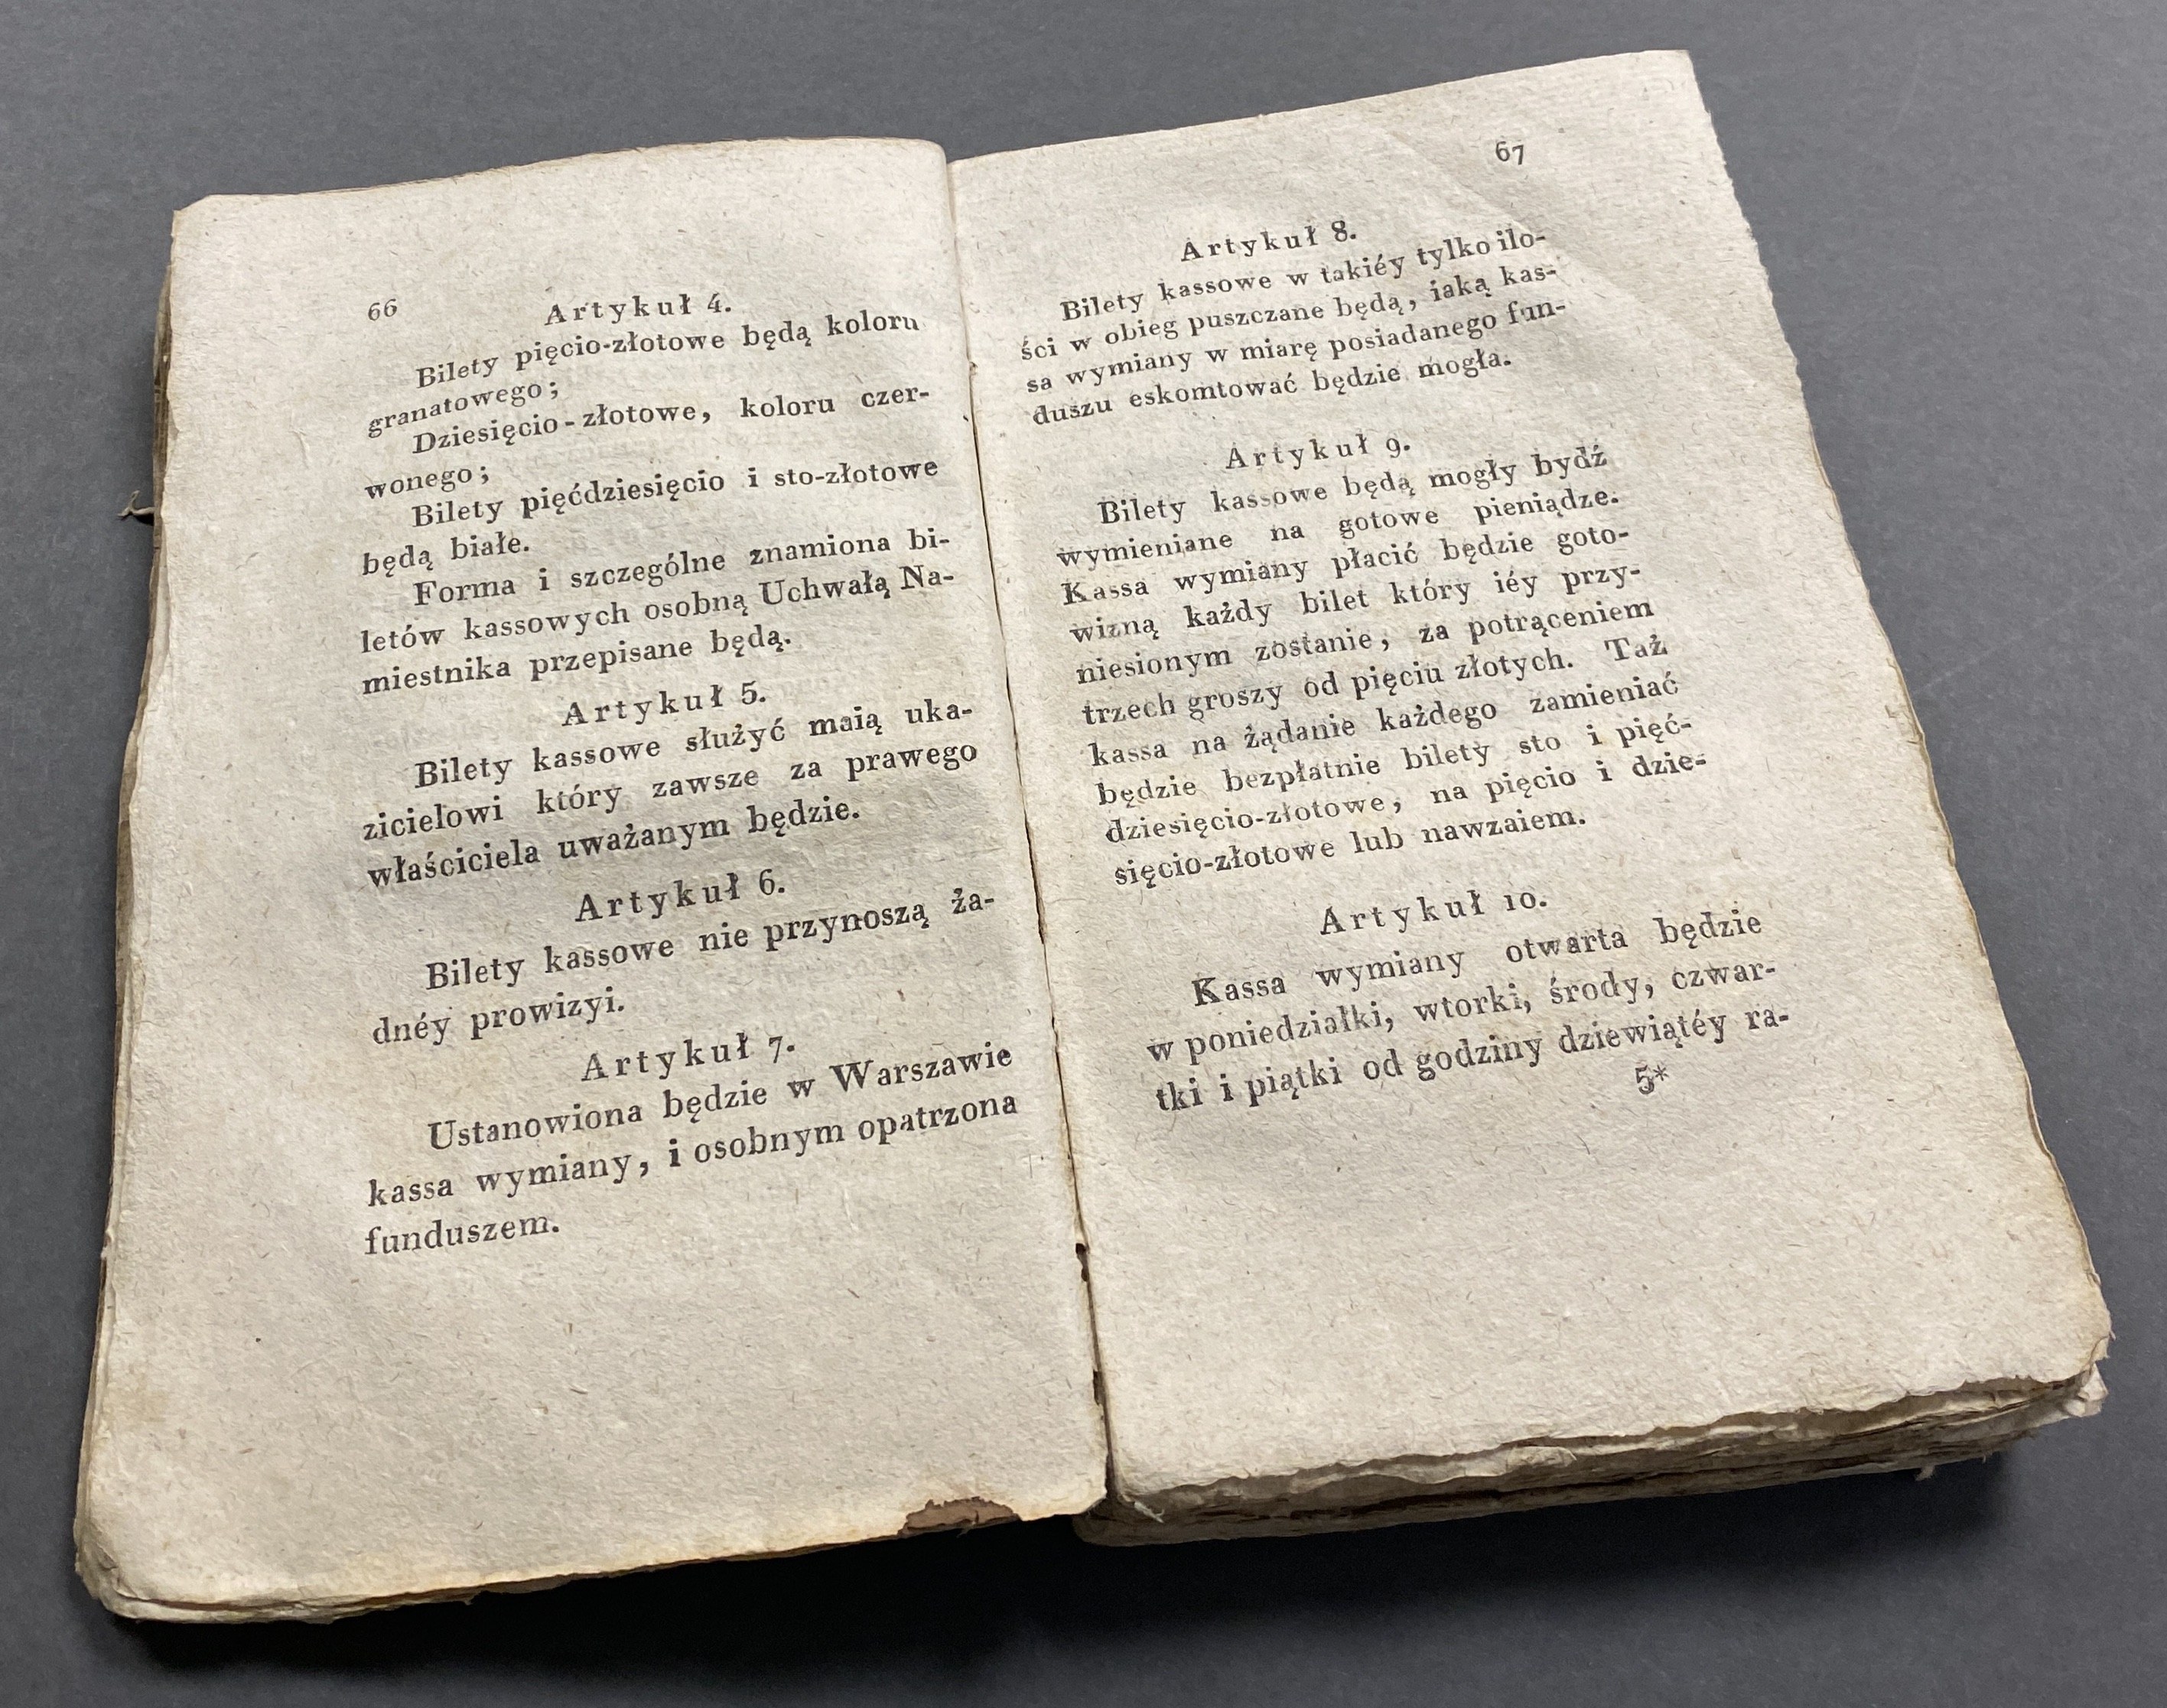 66
Artykuł 4.
Bilety pięcio-złotowe będą koloru
granatowego;
Dziesięcio-złotowe, koloru czer-
wonego;
Bilety pięćdziesięcio i sto-złotowe
będą białe.
Forma i szczególne znamiona bi-
letów kassowych osobną Uchwałą Na-
miestnika przepisane będą.
Artykuł 5.
Bilety kassowe służyć maią uka-
zicielowi który zawsze za prawego
właściciela uważanym będzie.
Artykuł 6.
Bilety kassowe nie przynoszą ża-
dnéy prowizyi.
Artykuł 7.
Ustanowiona będzie w Warszawie
kassa wymiany, i osobnym opatrzona
funduszem.
67
Artykuł 8.
Bilety kassowe w takiéy tylko ilo-
ści w obieg puszczane będą, iaką kas-
sa wymiany w miarę posiadanego fun-
duszu eskomtować będzie mogła.
Artykuł 9.
Bilety kassowe będą mogły bydź
wymieniane na gotowe pieniądze.
Kassa wymiany płacić będzie goto-
wizną każdy bilet który iéy przy-
niesionym zostanie, za potrąceniem
trzech groszy od pięciu złotych. Taż
kassa na żądanie każdego zamieniać
będzie bezpłatnie bilety sto i pięć-
dziesięcio-złotowe, na pięcio i dzie-
sięcio-złotowe lub nawzaiem.
Artykuł 10.
Kassa wymiany otwarta będzie
w poniedziałki, wtorki, środy, czwar-
tki i piątki od godziny dziewiątéy ra-
5*